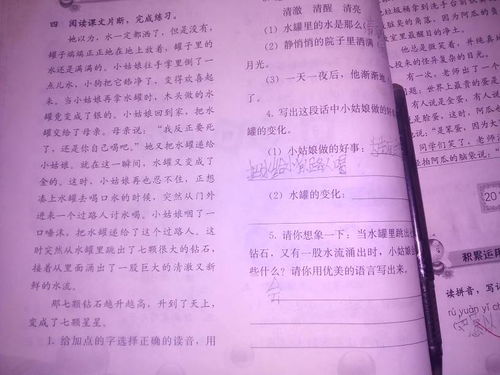 四 阅读课文片断，完成练习。
她以为，水一定都洒了，但是没有，
罐子端端正正地在地上放着，罐子里的
水还是满满的。小姑娘往手掌里倒了一
点儿水，小狗把它舔净了，变得欢喜起
来。当小姑娘再拿水罐时，木头做的水
罐竟变成了银的。小姑娘回到家，把水
罐交给了母亲。母亲说：“我反正要死
了，还是你自己喝吧。”她又把水罐递给
小姑娘。就在这一瞬间，水罐又变成了
金的。这时，小姑娘再也忍不住，正想
凑上水罐去喝口水的时候，突然从门外
进来一个过路人讨水喝。小姑娘咽了一
口唾沫，把水罐递给了这个过路人。这
时突然从水罐里跳出了七颗很大的钻石，
接着从里面涌出了一股巨大的清澈又新
鲜的水流。
那七颗钻石越升越高，升到了天上，
变成了七颗星星。
1. 给加点的字选择正确的读音，用
清澈 清醒 清亮
(1) 水罐里的水是那么(
(2) 静悄悄的院子里洒满
月光。
(3) 一天一夜后，他渐渐地
了。
4. 写出这段话中小姑娘做的
罐的变化。
(1) 小姑娘做的好事：
(2) 水罐的变化：
5. 请你想象一下：当水罐里跳出
钻石，又有一股水流涌出时，小姑娘会
些什么？请你用优美的语言写出来。
他总是微笑着，并
人投来的怪异目光
有一次，老师出了一个
问题：世界上最贵的蛋是
有人说是金蛋，有人说
是脸蛋。这时，阿瓜
说：“是笨蛋，因为大
同学们笑了，老师
轻拍阿瓜的脑袋说：“
20
积累运用
读拼音，写词
rú yuàn yǐ ch